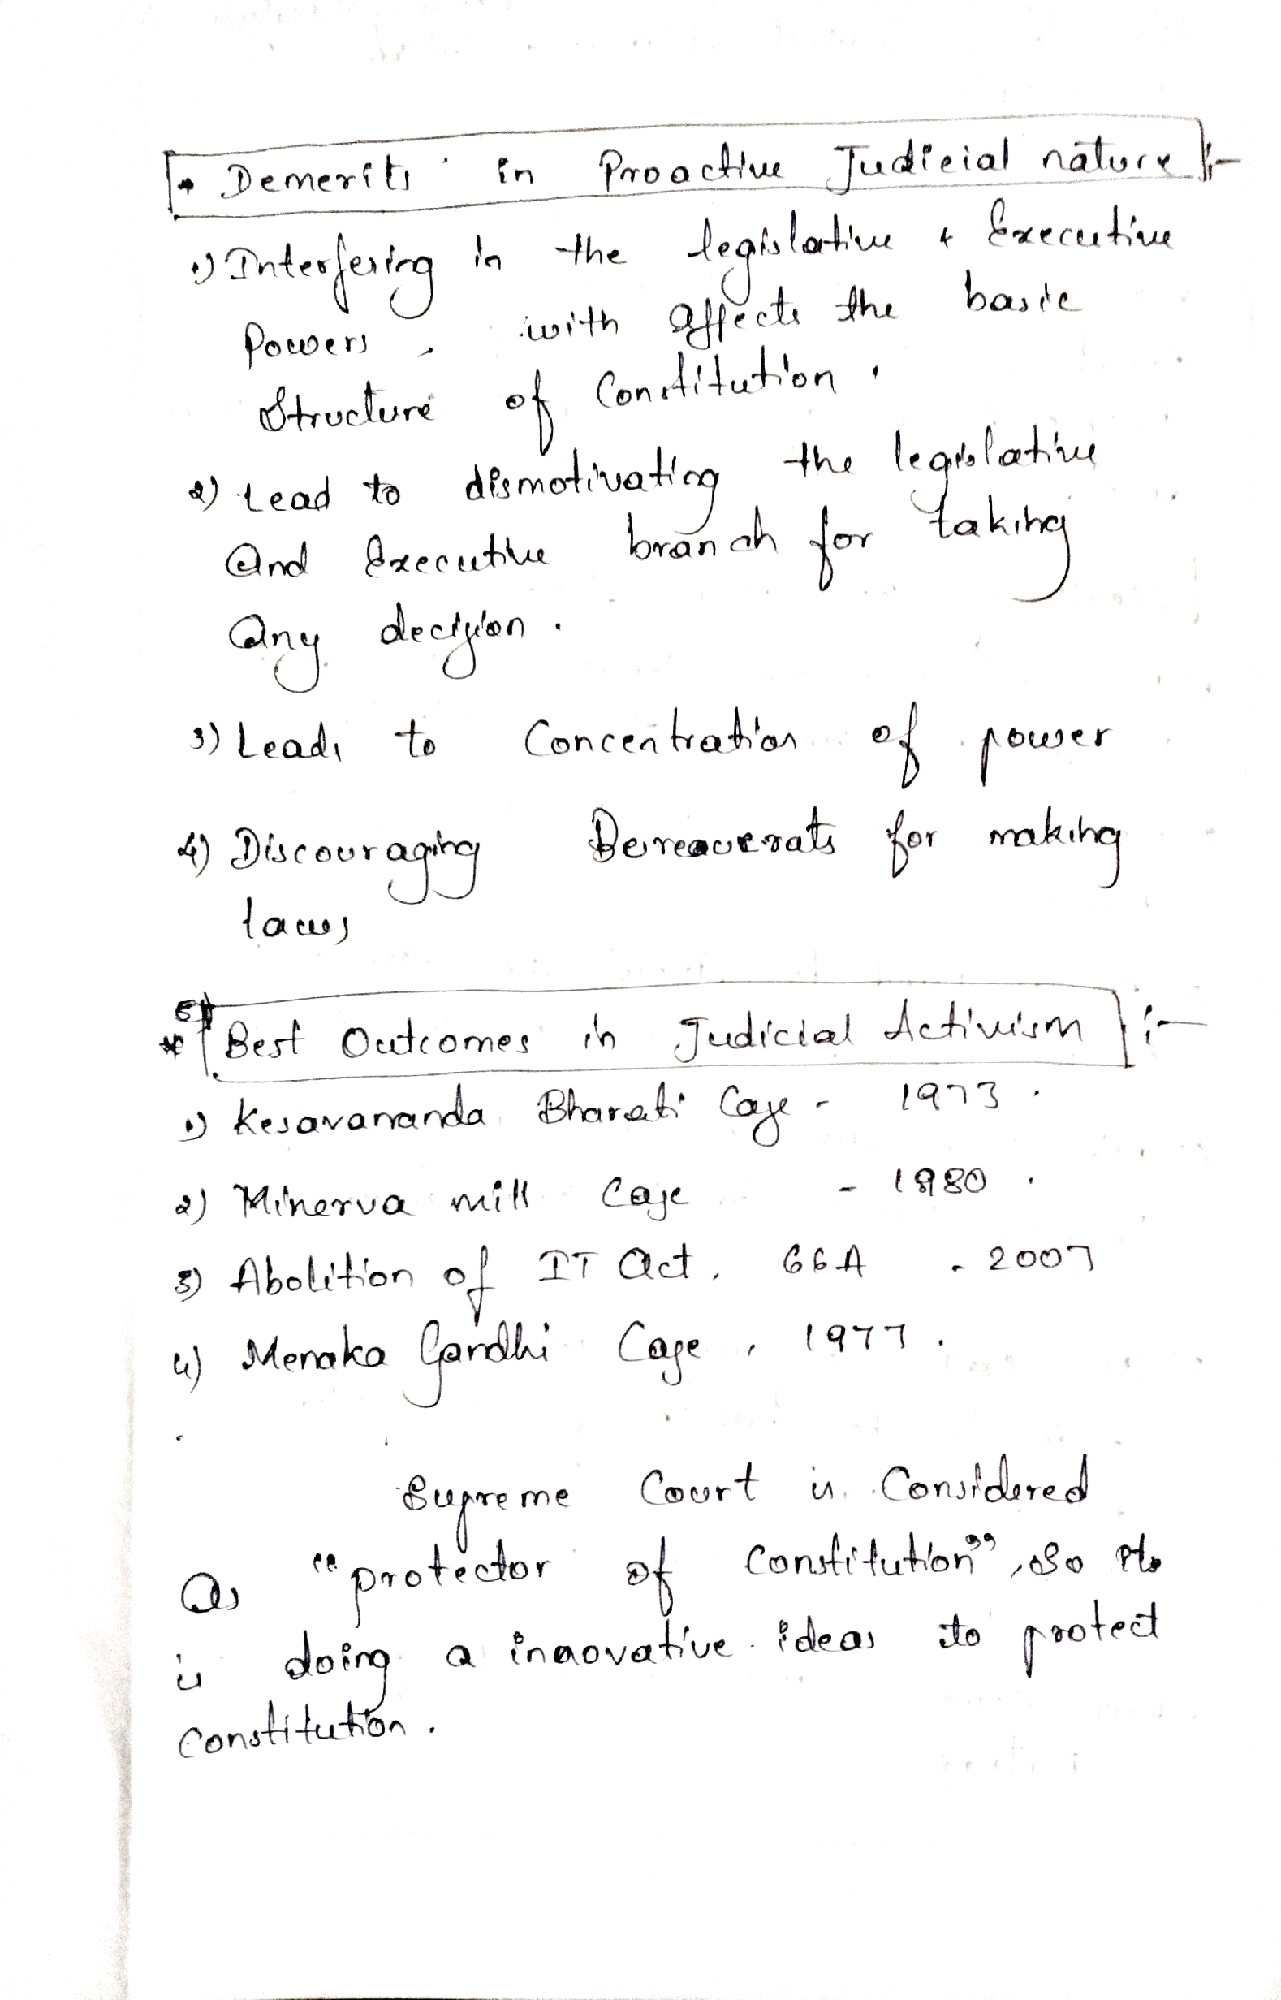 * Demerits in Proactive Judicial nature :-
1) Interfering in the legislative & Executive
Powers, with affects the basic
Structure of Constitution.
2) Lead to dismotivating the legislative
and Executive branch for taking
any decision.
3) Leads to Concentration of power
4) Discouraging Bereaucrats for making
laws
* Best Outcomes in Judicial Activism :-
1) Kesavananda Bharati Case - 1973.
2) Minerva mill Case - 1980.
3) Abolition of IT act, 66A - 2007
4) Menaka Gandhi Case, 1977.
Supreme Court is Considered
as "protector of Constitution", so its
is doing a innovative ideas to protect
Constitution.